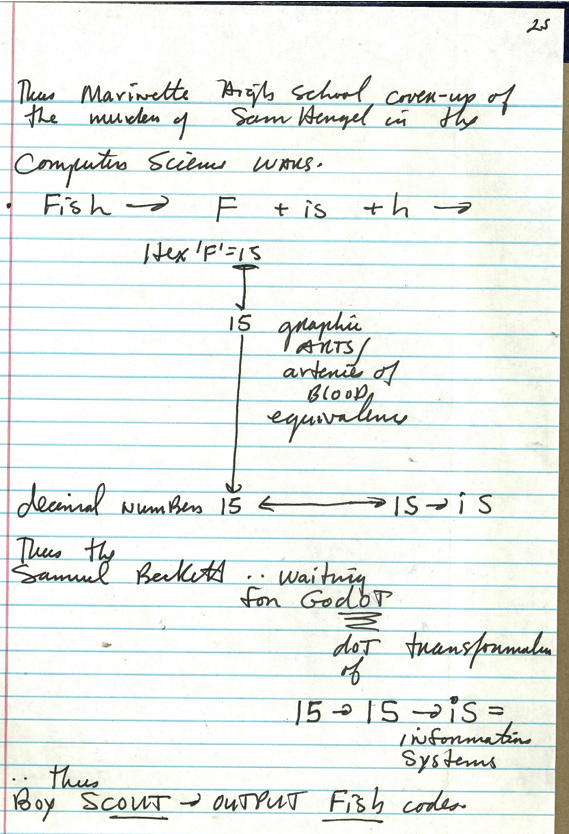 25
Thus Marinette High School cover-up of
the murder of Sam Hengel in the
Computer Science WARS.
Fish → F + is + h →
Hex 'F' = 15
15 graphic
ARTS/
arteries of
BLOOD
equivalence
decimal NUMBERS 15 ←→ 1S → i S
Thus the
Samuel Beckett .. waiting
for GodoT
doT transformation
of
15 → 1S → iS =
information
Systems
∴ thus
Boy SCOUT → OUTPUT Fish codes.